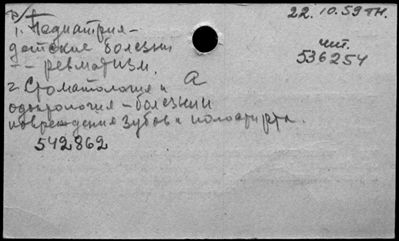 р/т
22.10.59 тн.
1. Педиатрия-
детские болезни
- - ревматизм.
чит.
536254
а
2. Стоматология и
одонтология - болезни и
повреждения зубов и полости рта.
542862